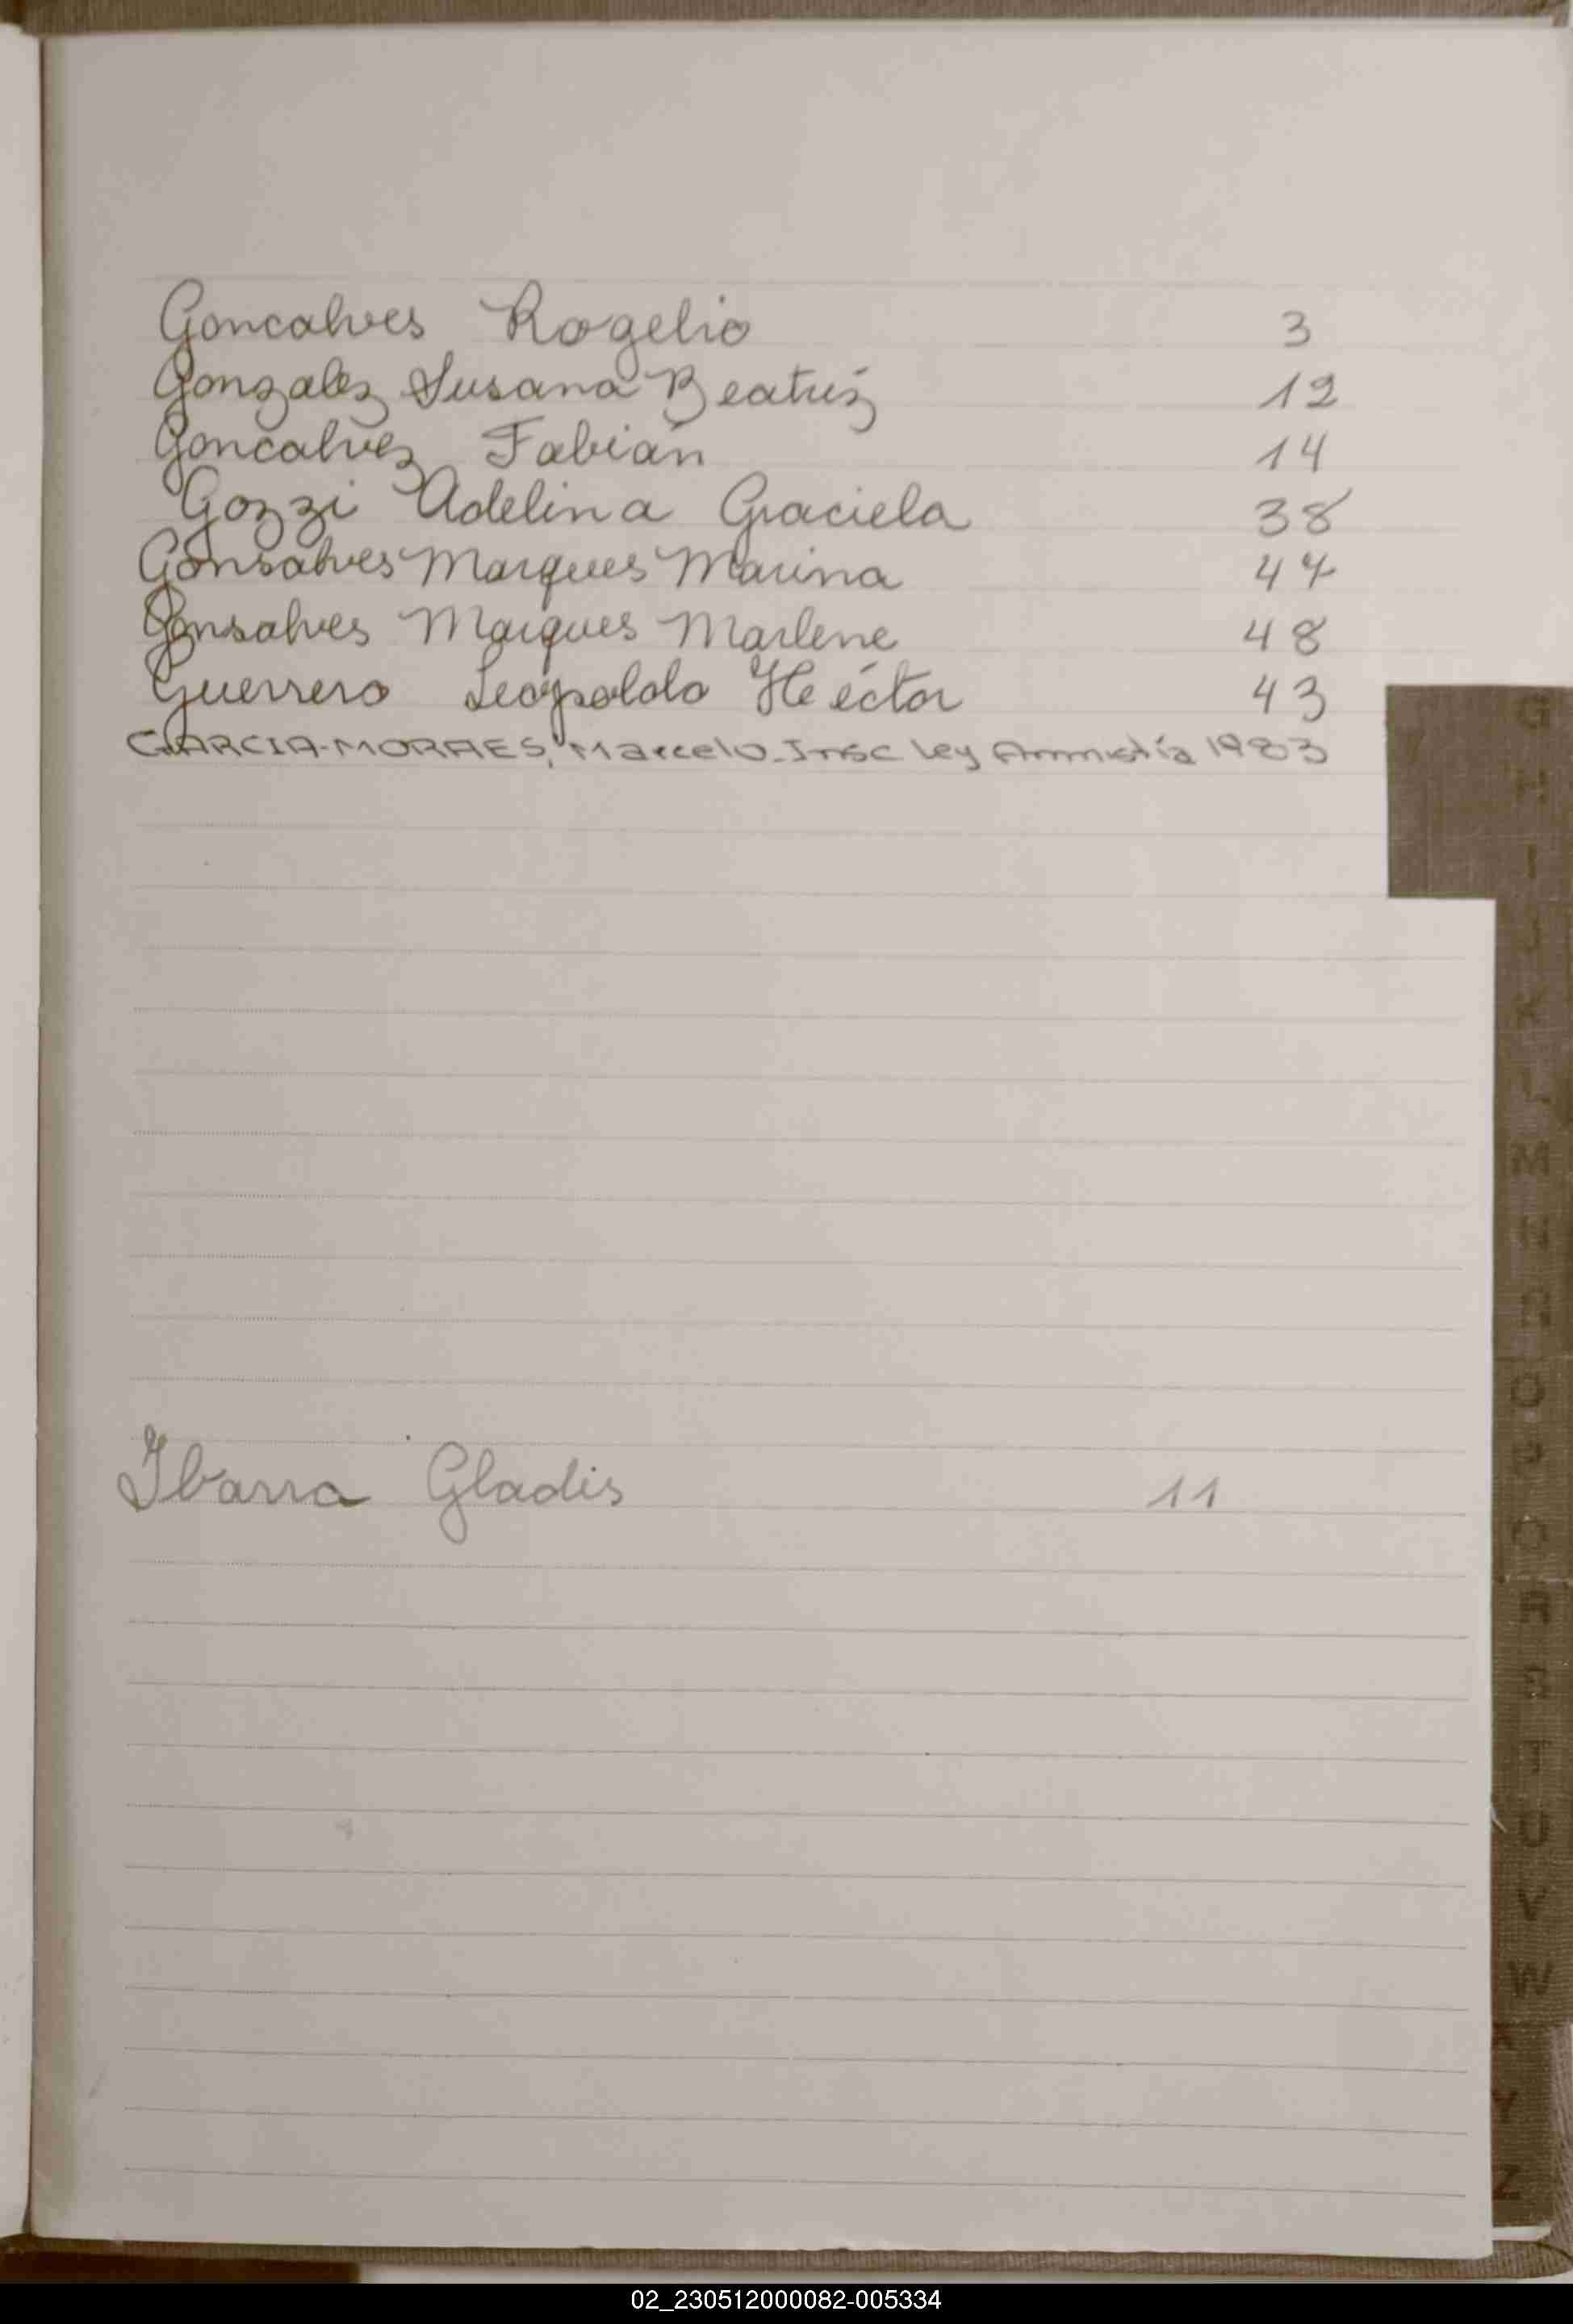 Goncalves Rogelio 3
Gonzalez Susana Beatriz 12
Goncalvez Fabián 14
Gozzi Adelina Graciela 38
Gonsalves Marques Marina
Gonsalves Marques Marlene 48
Guerrero Leopoldo Héctor 43
GARCIA-MORAES, Marcelo-Insc ley Amnistía 1983
G
H
I
J
K
L
M
N
Ñ
O
P
Q
R
S
T
U
V
W
X
Y
Z
Ibarra Gladis 11
02_230512000082-005334